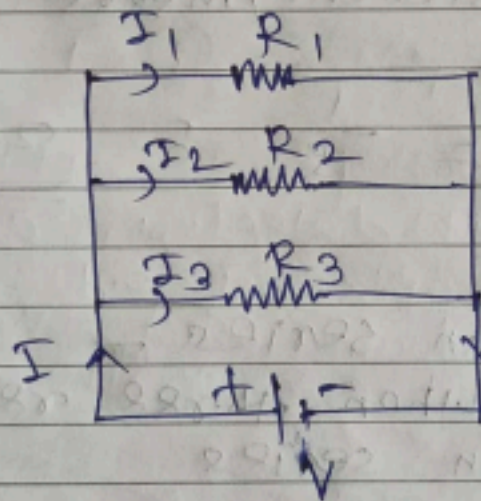 I1 R1
I2 R2
I3 R3
I
+ -
V